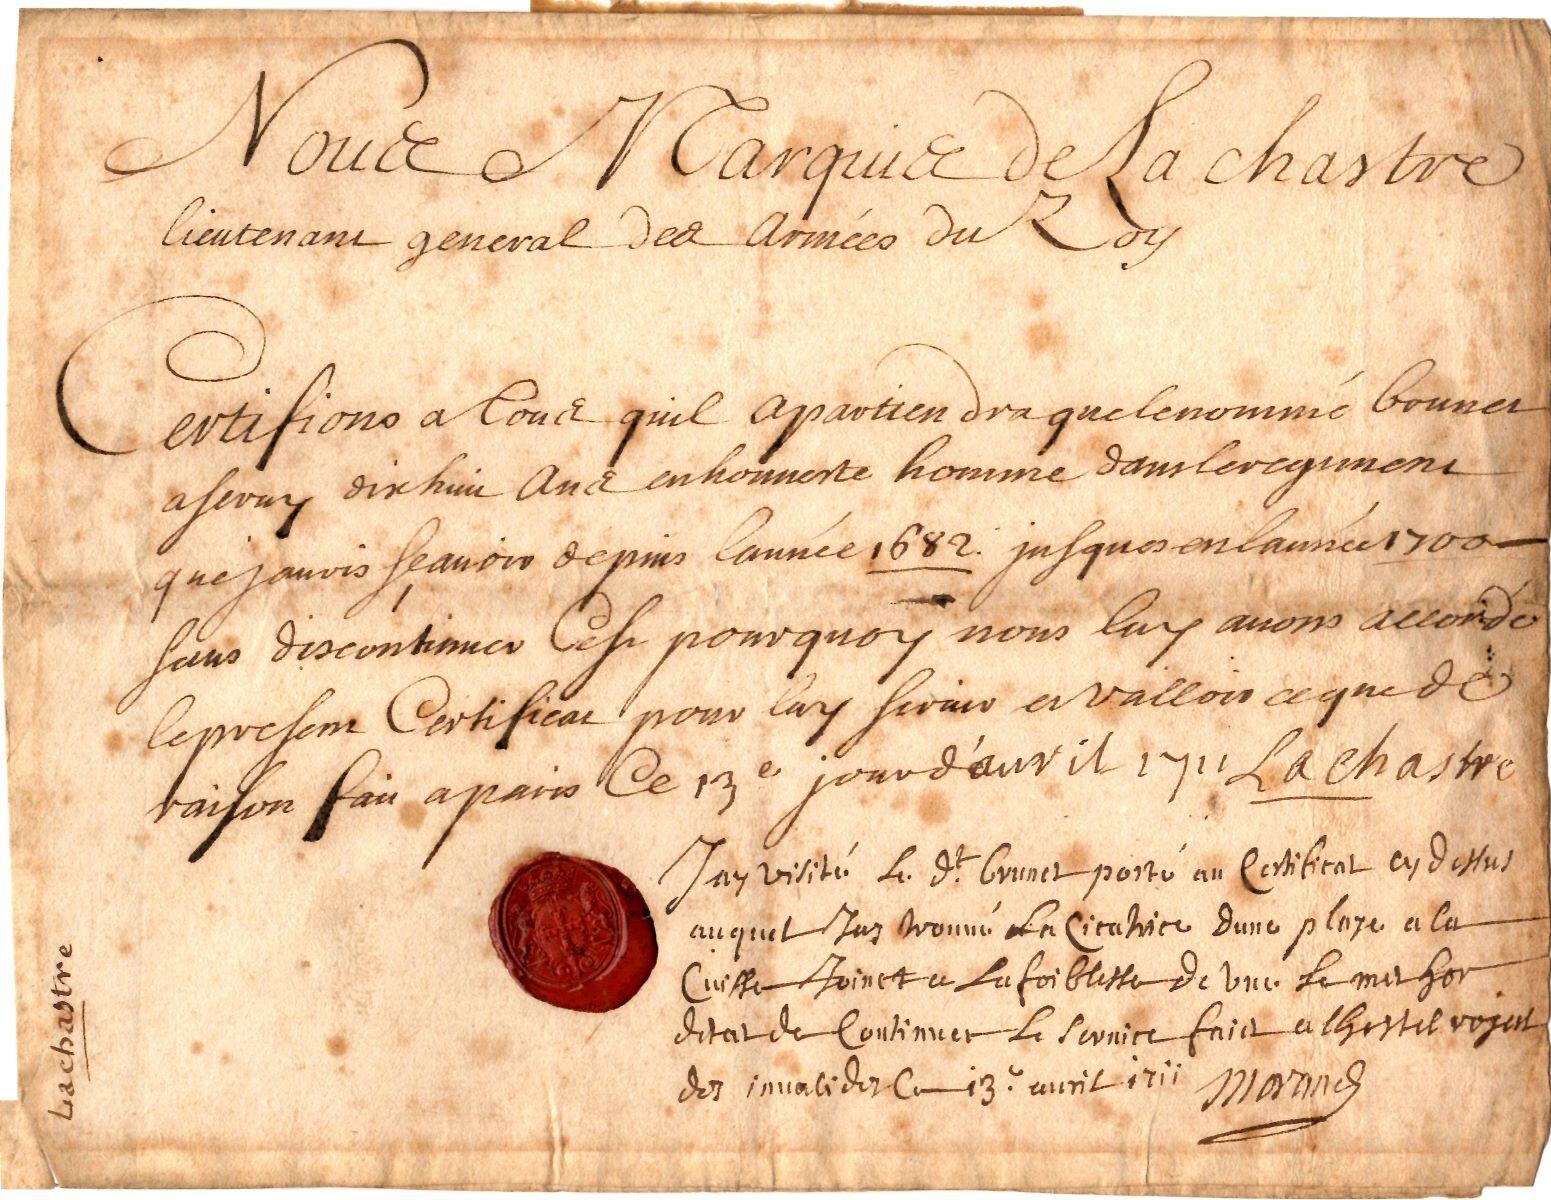 Nous Marquis de La chastre
lieutenant general des Armées du Roy
Certifions a tous quil apartiendra que le nommé brunet
a servy dix huit Ans en honneste homme dans le regiment
que javois sçavoir depuis lannée 1682. jusques en lannée 1700
sans discontinuer Cest pourquoy nous luy avons accordé
le present Certificat pour luy servir et valloir ce que de
raison fait a paris Ce 13e jour d'avril 1711 La Chastre
Jay visité le dt. brunet porté au Certificat cy dessus
auquel Jay trouvé la Cicatrice dune playe a la
Cuisse Joinct a La foiblesse de vue le met hor
detat de Continuer le service faict a lhostel royal
des invalides Ce 13e avril 1711 Morand
Lachastre